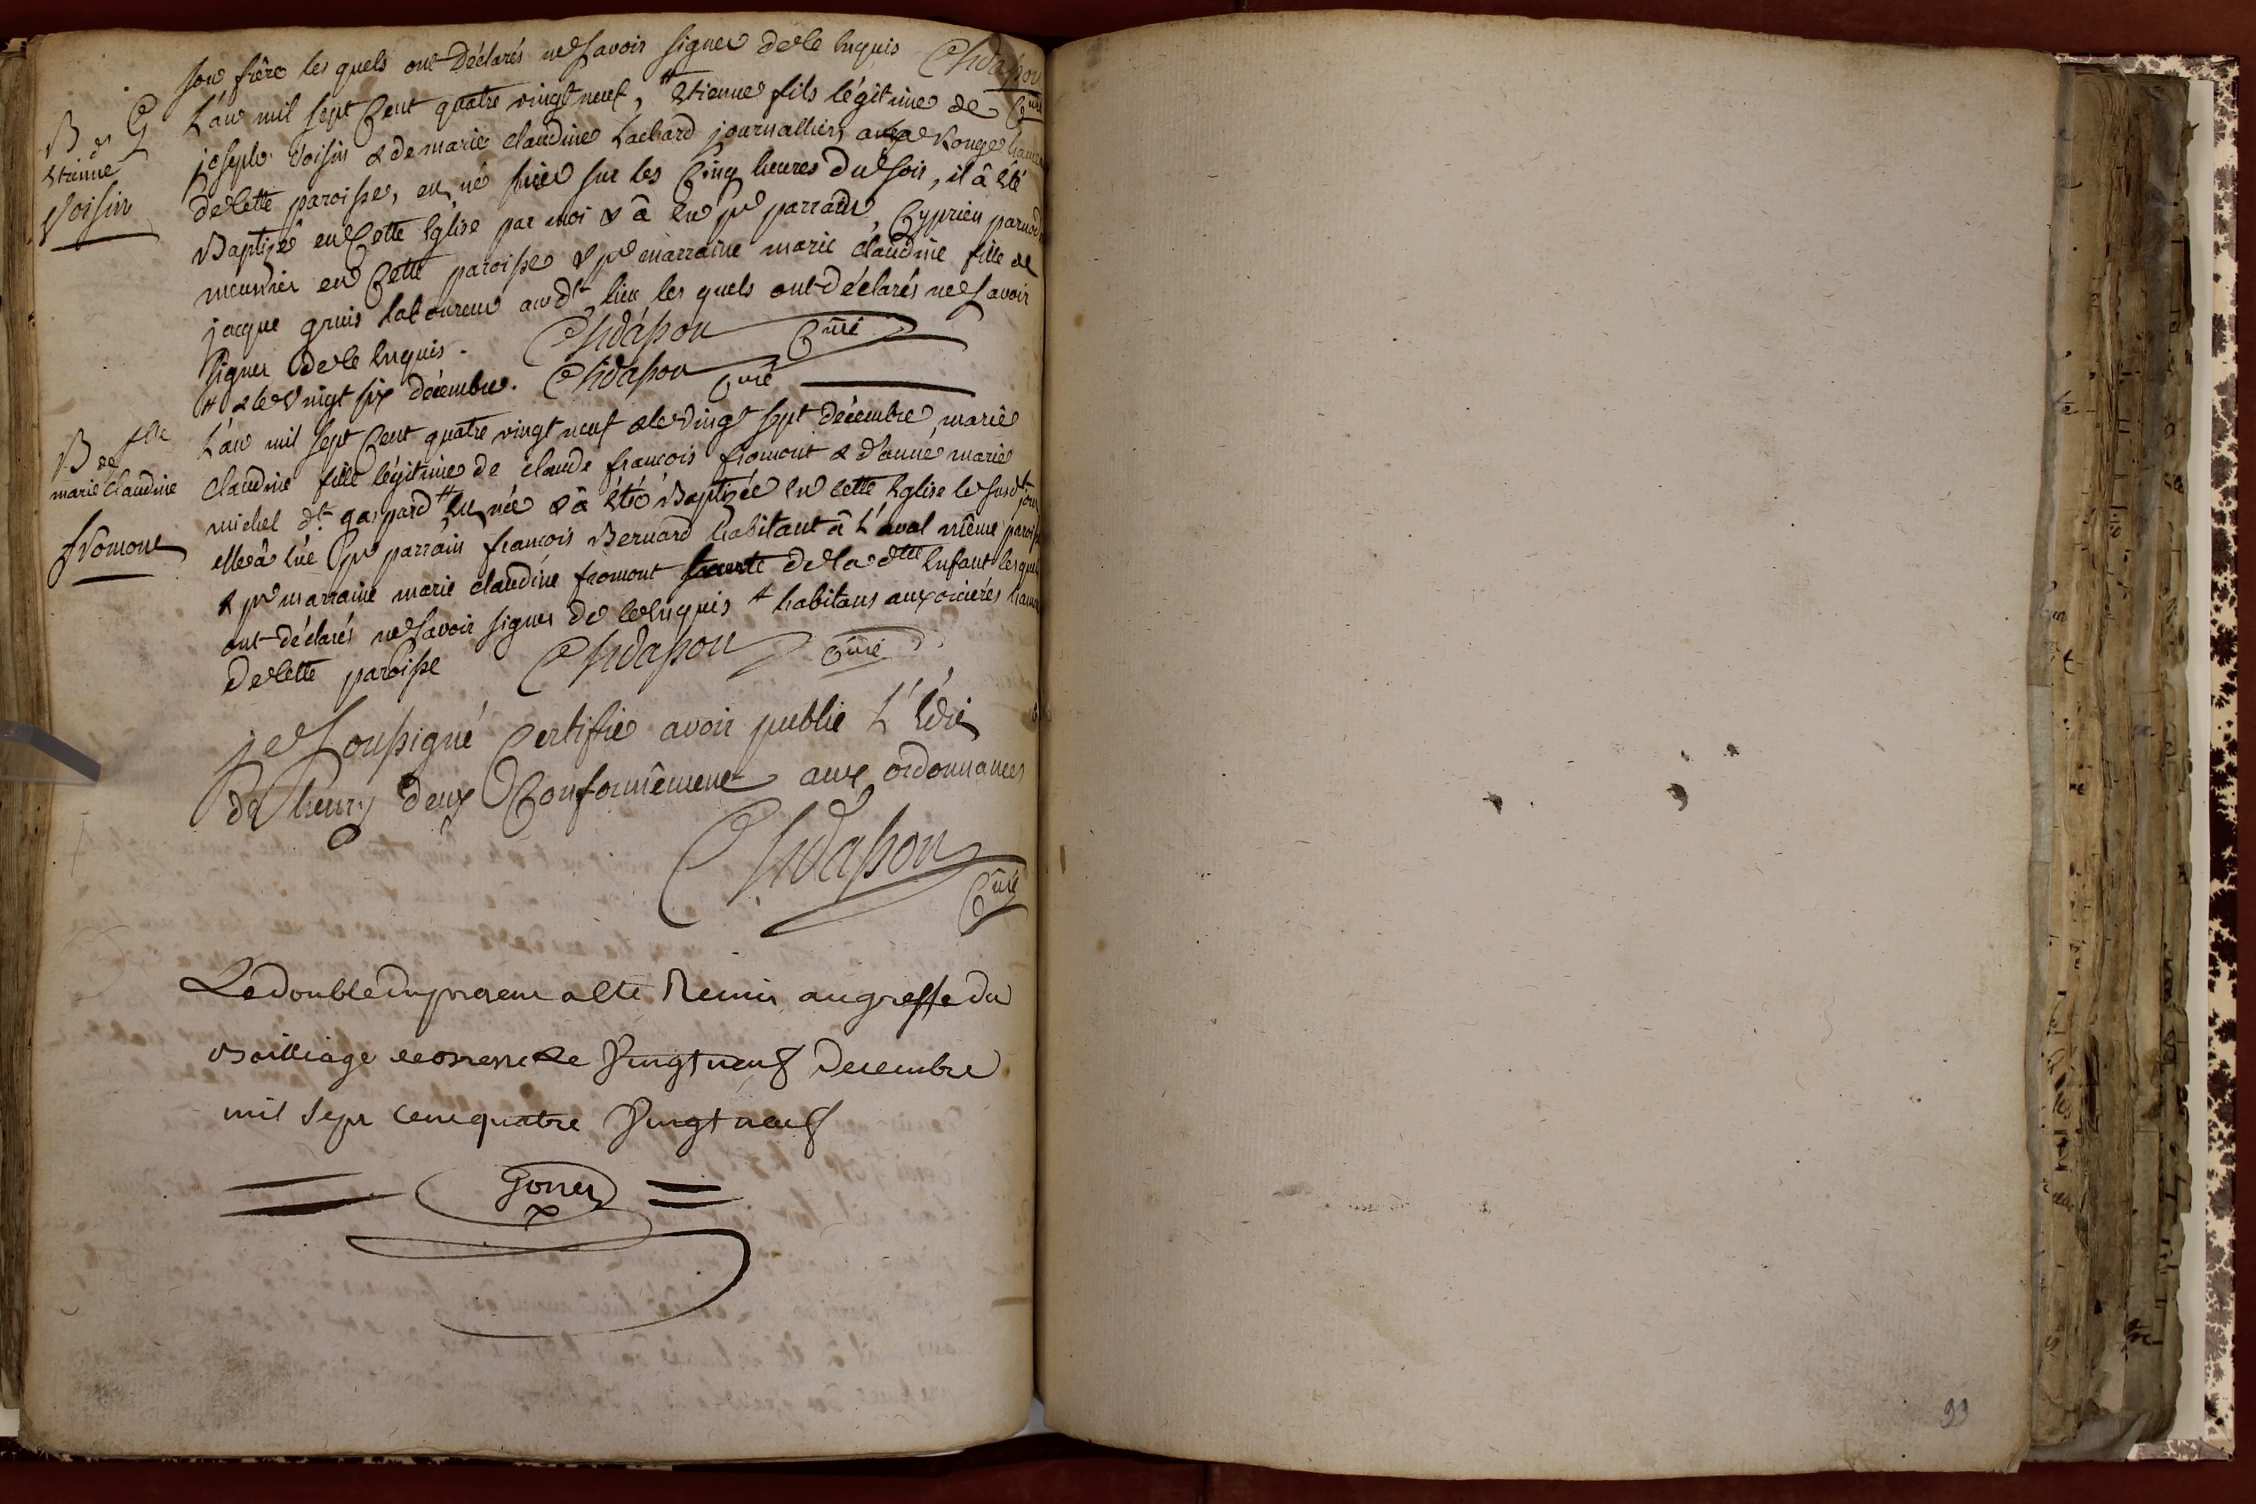 son frère les quels ont Déclarés ne savoir signer de ce Enquis Chidasson
Curé
B G
d'
Etienne
Voisin
L'an mil sept Cent quatre vingt neuf, # Etienne fils légitime de
joseph Voisin & de marie claudine Lachard journalliers
de Cette paroisse, est né hier sur les Cinq heures du soir, il â été
Baptizé en Cette Eglise par moi & â eu pr parrain, Cyprien
meunier en Cette paroisse & pr marraine marie claudine fille de
jacque laboureur au dt lieu les quels ont déclarés ne savoir
signer de ce Enquis. Chidasson Curé
# & le vingt six décembre. Chidasson Curé
B de flle
marie claudine
fromont
L'an mil sept Cent quatre vingt neuf & le vingt sept décembre, marie
claudine fille légitime de claude françois fromont & d'anne marie
michel dt gaspard # est née & â été Baptizée en cette Eglise le susdt jour
elle â eue pr parrain françois Bernard habitant â L'aval même paroisse
& pr marraine marie claudine fromont tante de la dtte Enfant les quels
ont déclarés ne savoir signer de ce Enquis # habitans aux
de Cette paroisse Chidasson Curé
je soussigné Certifie avoir publié L'Edit
de henry deux Conformêment aux ordonnances
Chidasson
Curé
Le double du present a été Remis au greffe du
Bailliage le Vingt neuf Decembre
mil sept cent quatre Vingt neuf
99